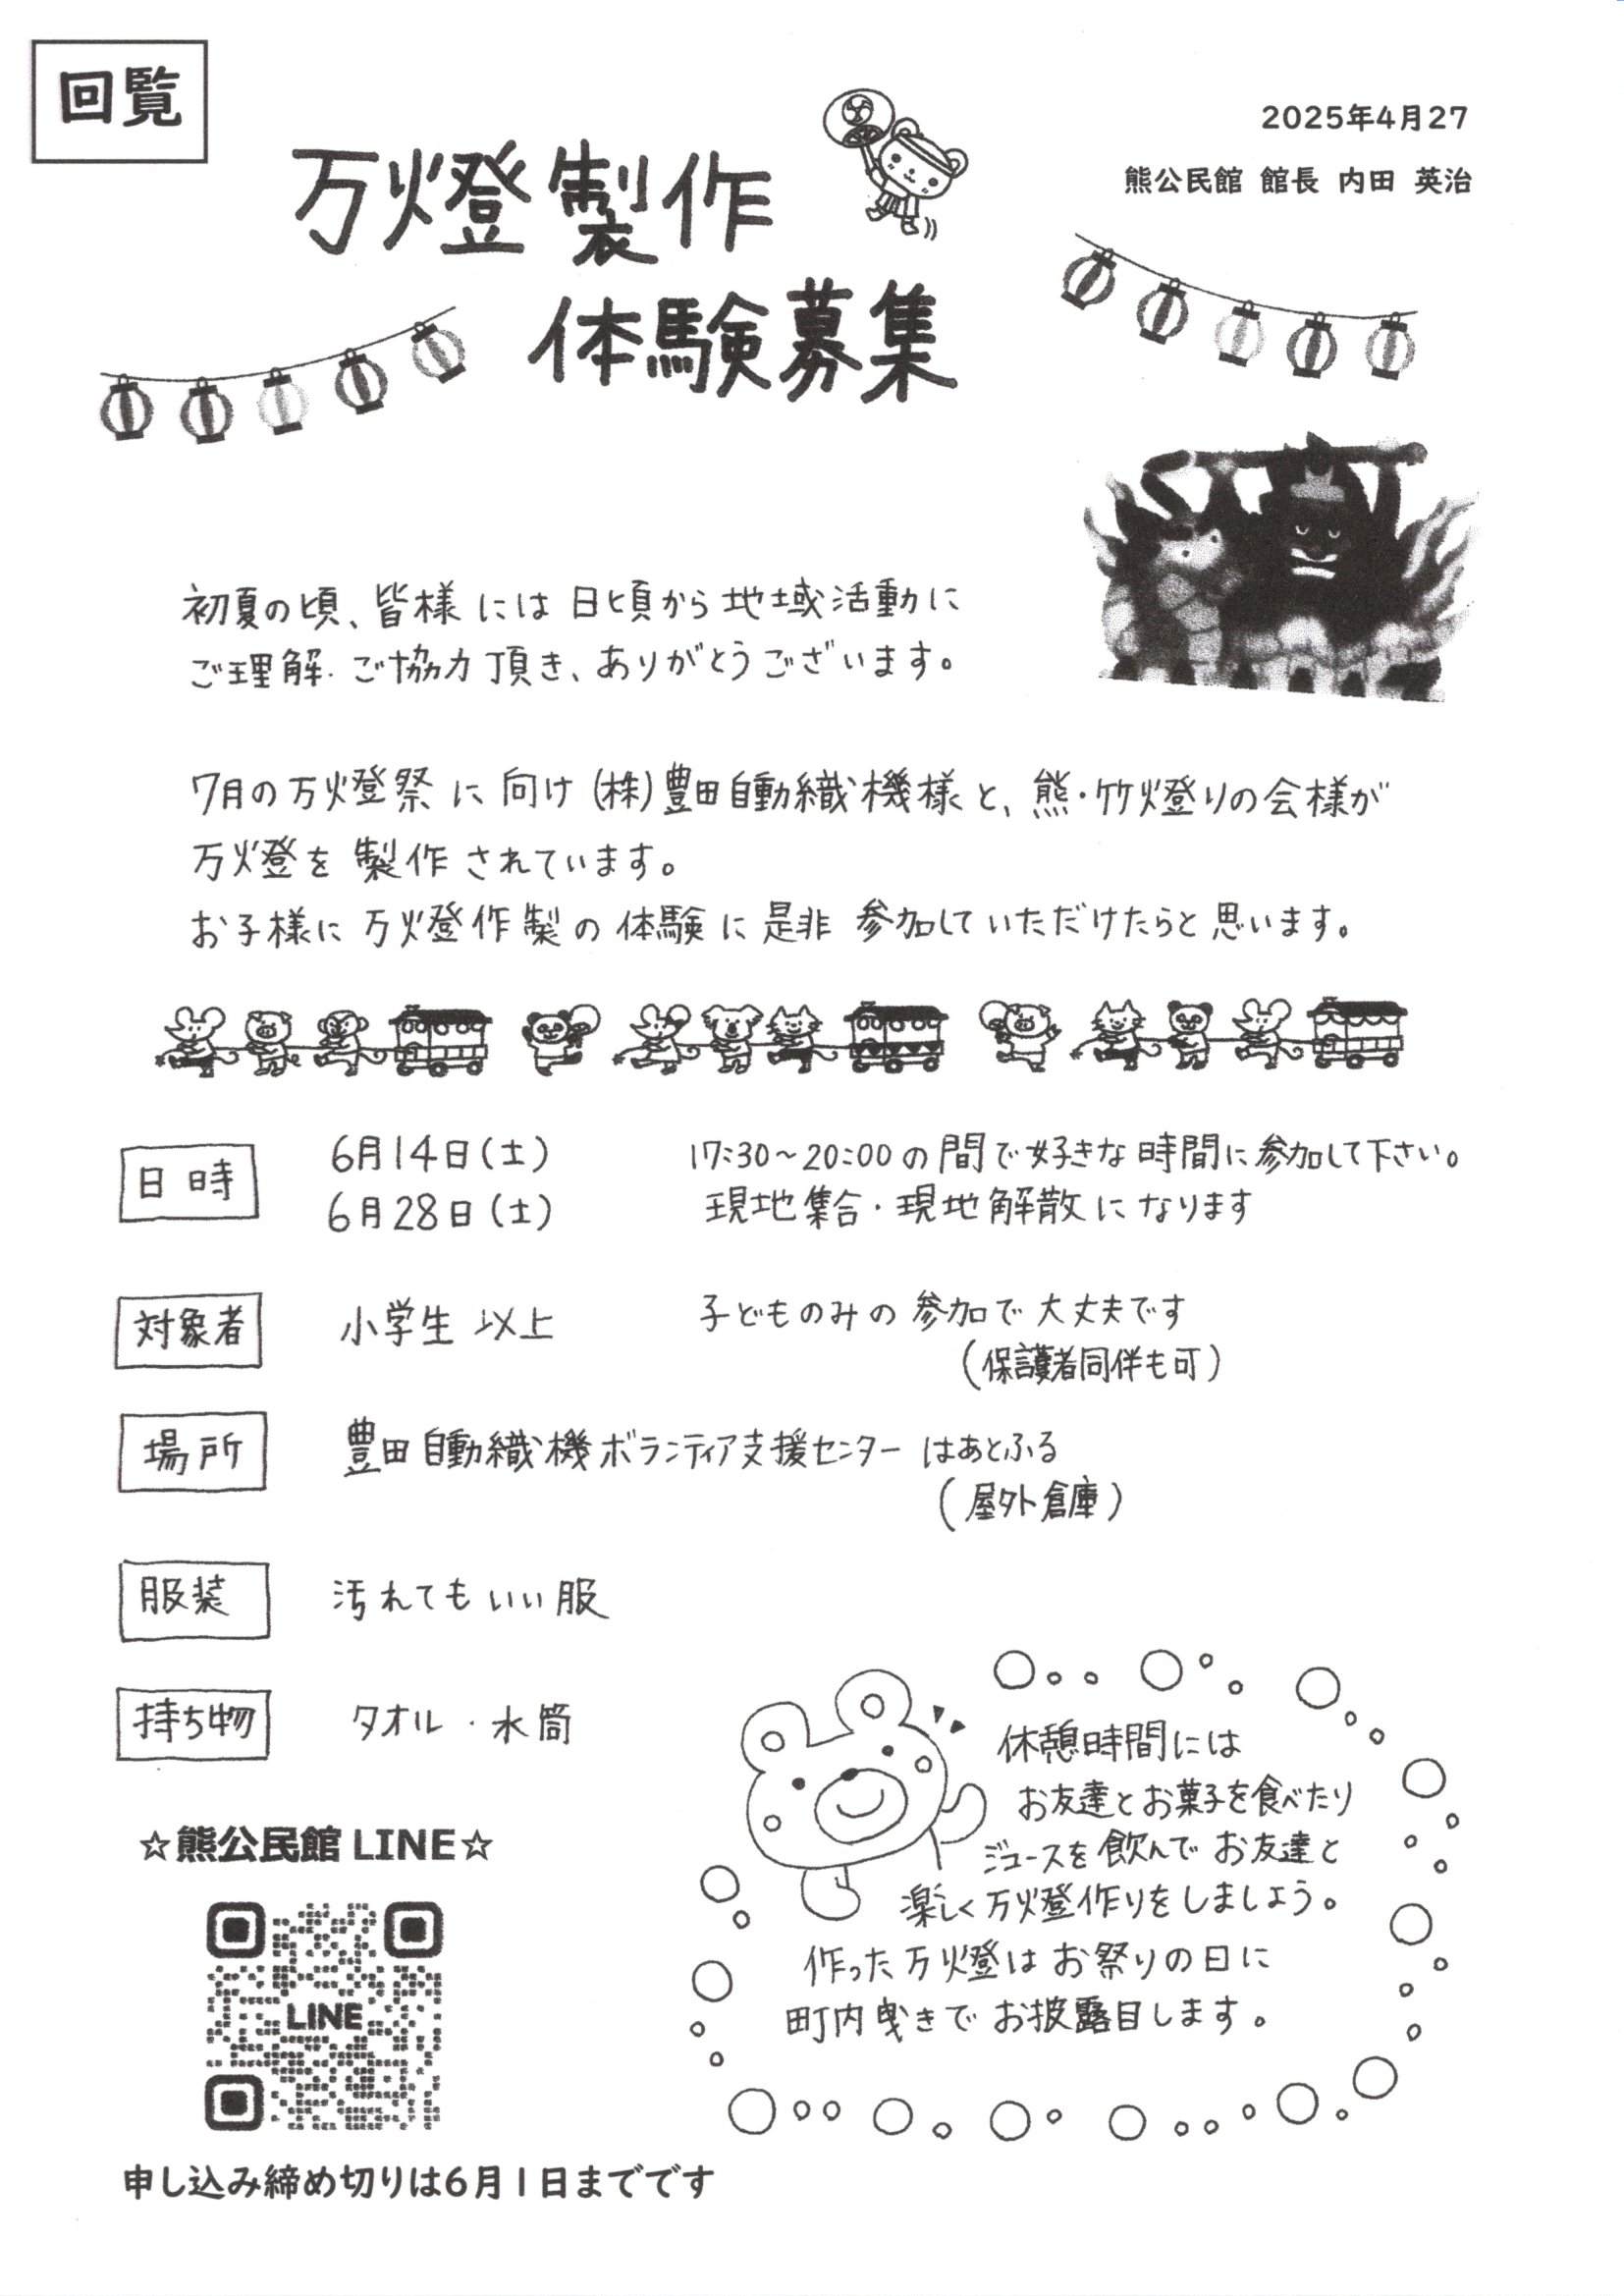 回覧
2025年4月27
熊公民館 館長 内田 英治
万燈製作
体験募集
初夏の頃、皆様には日頃から地域活動に
ご理解・ご協力頂き、ありがとうございます。
7月の万燈祭に向け(株)豊田自動織機様と、熊・竹燈りの会様が
万燈を製作されています。
お子様に万燈作製の体験に是非参加していただけたらと思います。
日時
6月14日(土) 17:30~20:00の間で好きな時間に参加して下さい。
6月28日(土) 現地集合・現地解散になります
対象者 小学生以上 子どものみの参加で大丈夫です
(保護者同伴も可)
場所 豊田自動織機ボランティア支援センター はあとふる
(屋外倉庫)
服装 汚れてもいい服
持ち物 タオル・水筒
休憩時間には
お友達とお菓子を食べたり
ジュースを飲んでお友達と
楽しく万燈作りをしましょう。
作った万燈はお祭りの日に
町内曳きでお披露目します。
☆熊公民館LINE☆
LINE
申し込み締め切りは6月1日までです